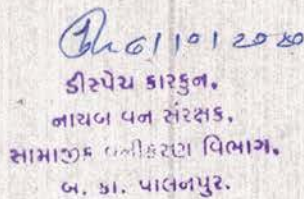 ડીસ્પેચ કારકુન.
નાયબ વન સંરક્ષક.
સામાજીક વનીકરણ વિભાગ.
બ. કા. પાલનપુર.